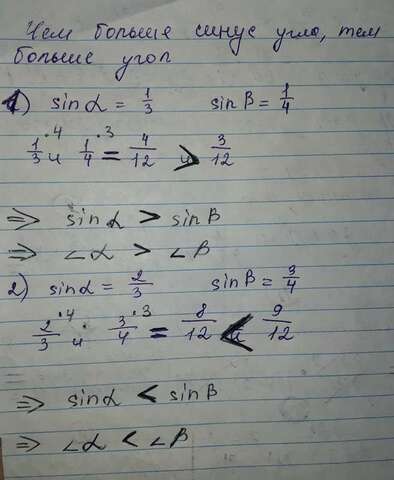 Чем больше синус угла, тем
больше угол
1) sin α = 1/3 sin β = 1/4
1/3 ·4 и 1/4 ·3 = 4/12 > 3/12
⇒ sin α > sin β
⇒ ∠α > ∠β
2) sin α = 2/3 sin β = 3/4
2/3 ·4 и 3/4 ·3 = 8/12 < 9/12
⇒ sin α < sin β
⇒ ∠α < ∠β